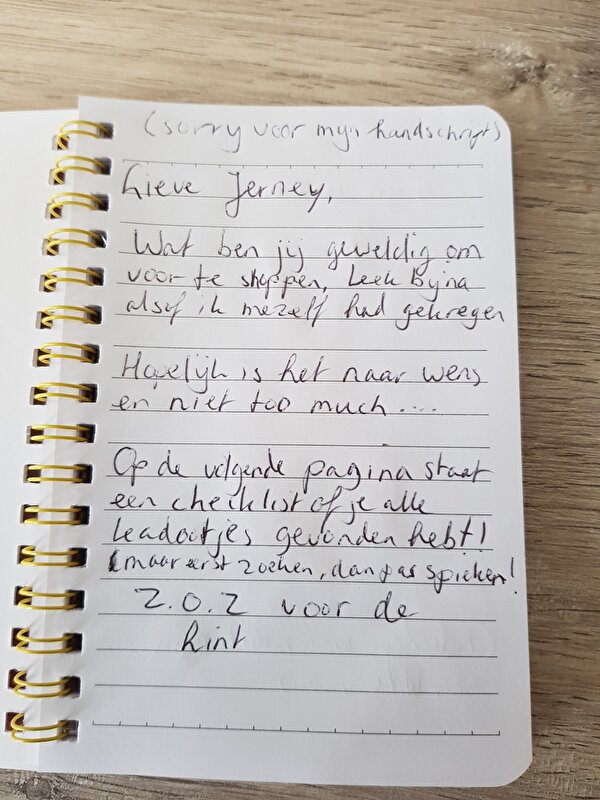 (sorry voor mijn handschrift)
Lieve Jerney,
Wat ben jij geweldig om
voor te shoppen, Leek Bijna
alsof ik mezelf had gekregen
Hopelijk is het naar wens
en niet too much....
Op de volgende pagina staat
een checklist of je alle
keadootjes gevonden hebt!
(maar eerst zoeken, dan pas spieken!
Z.O.Z voor de
hint